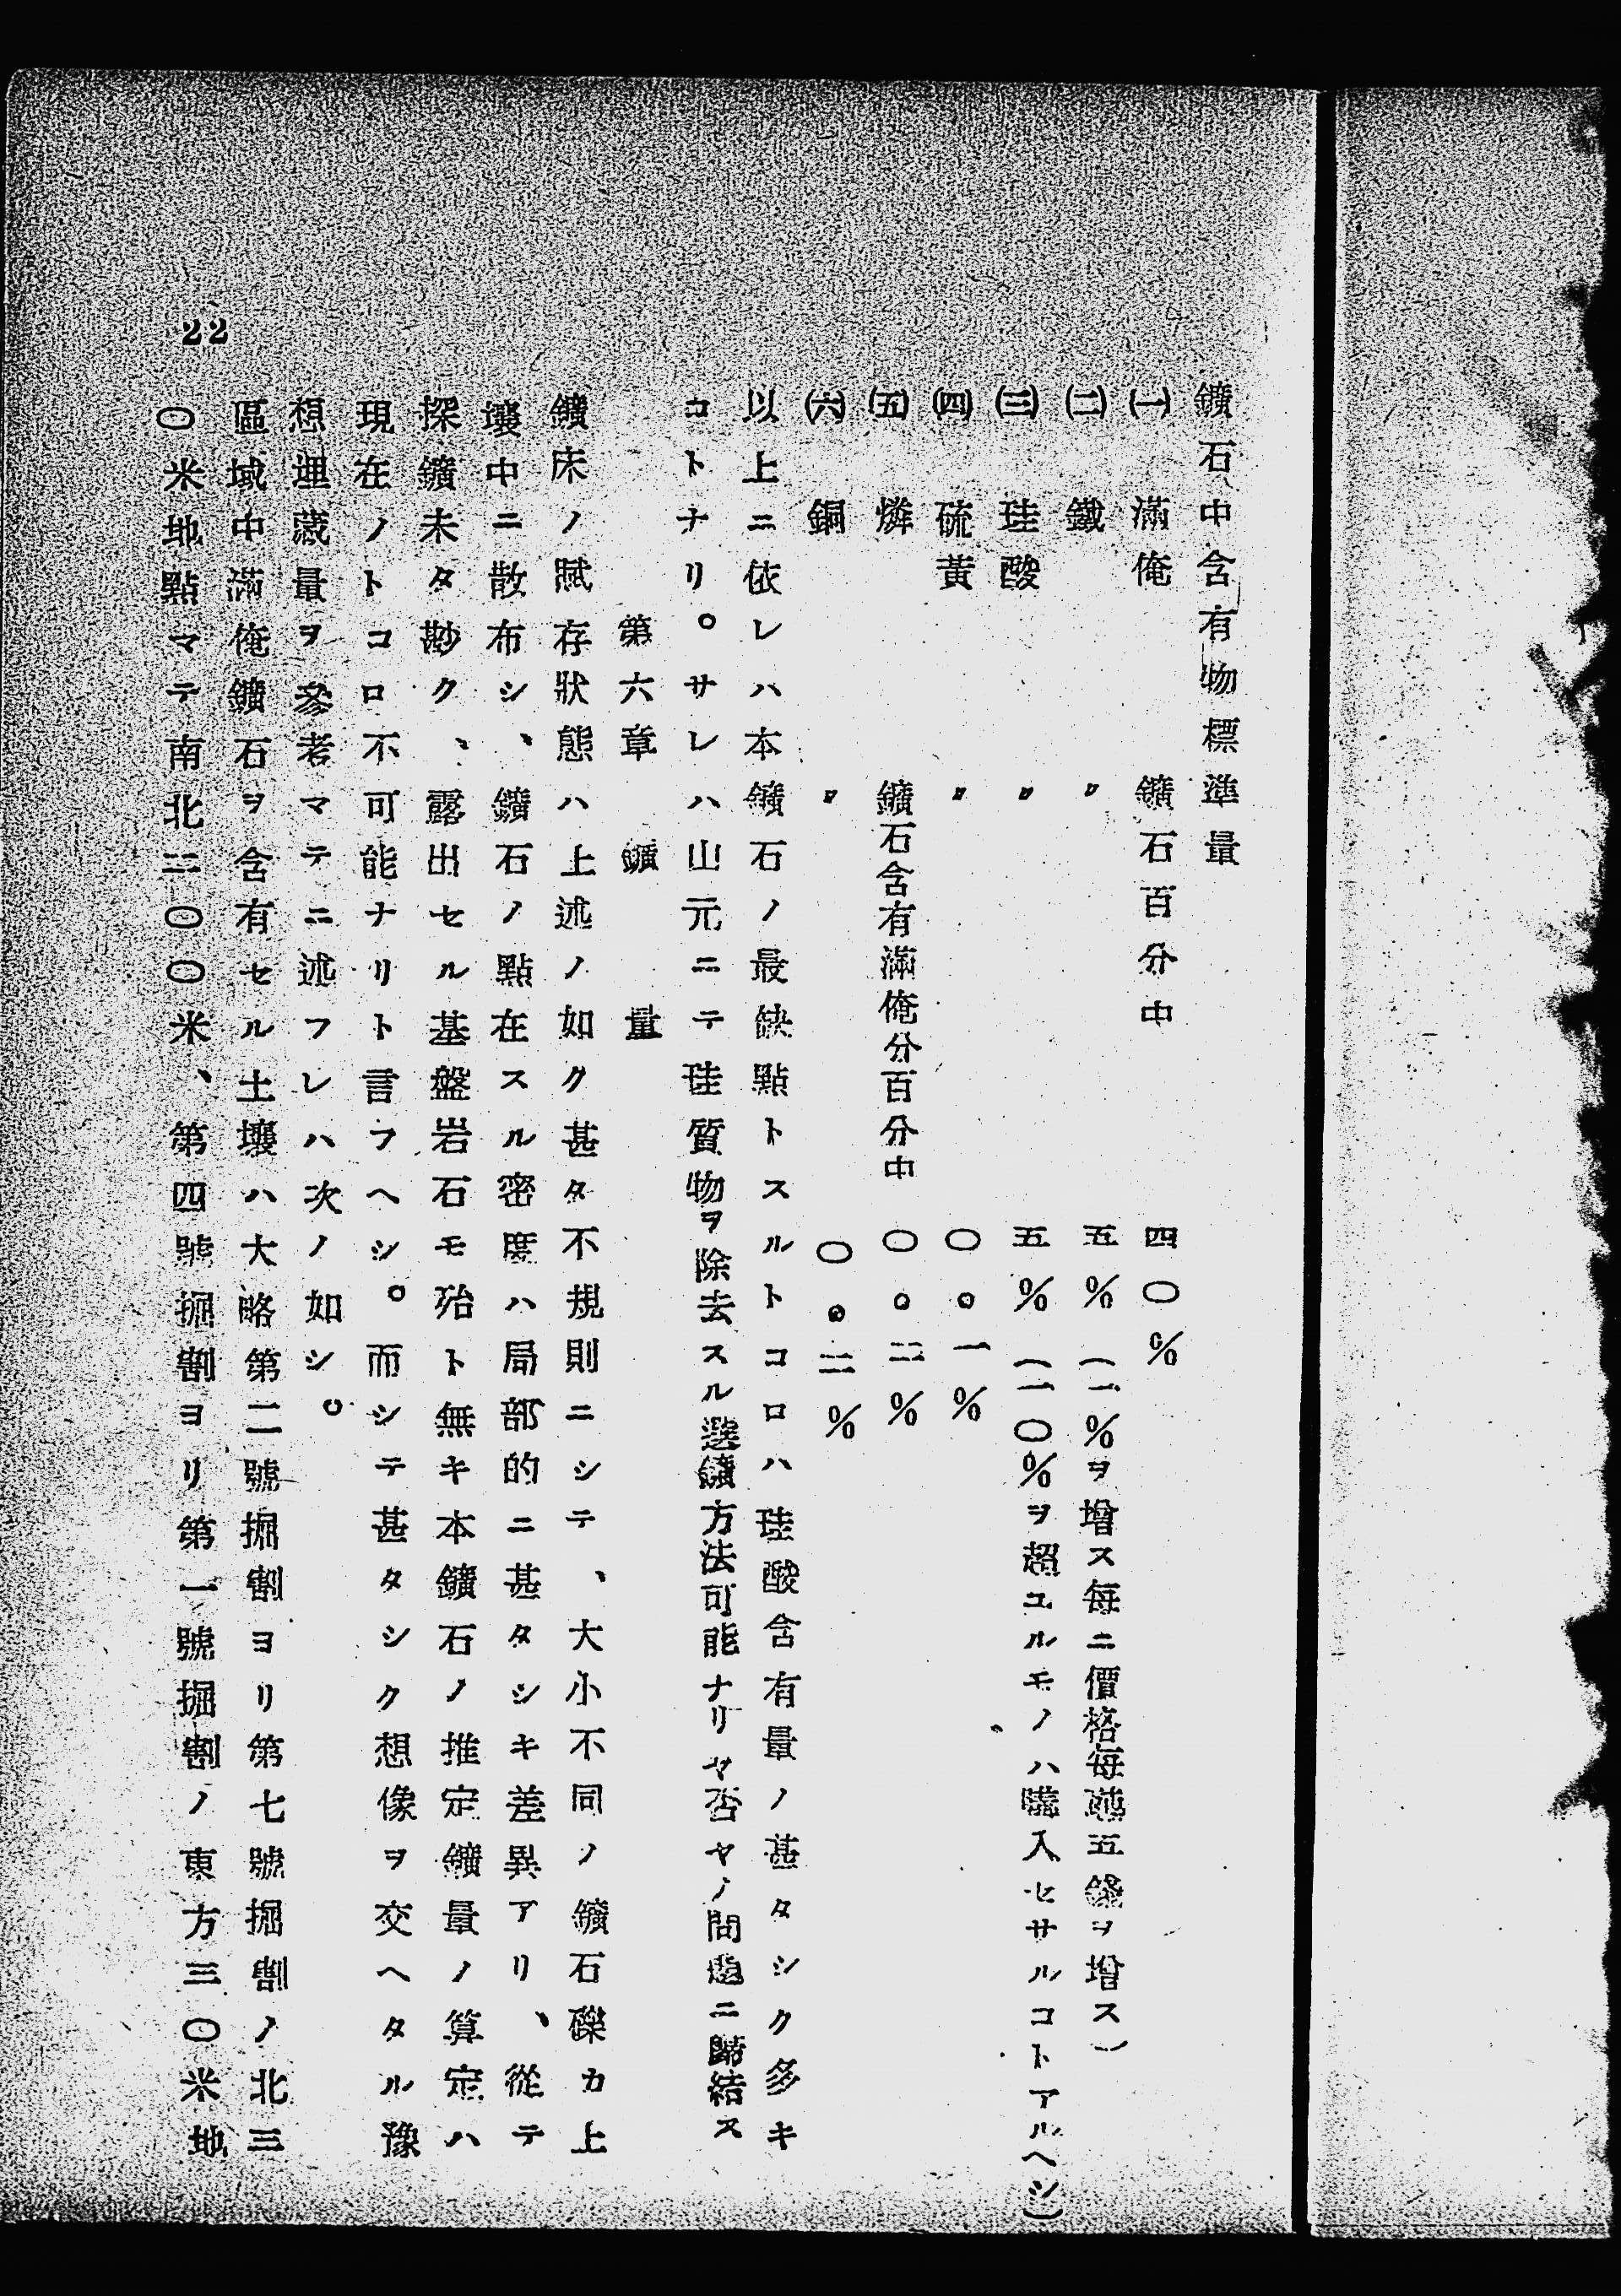 鑛石中含有物標準量
㈠　滿俺　鑛石百分中　四〇%
㈡　鐵　〃　五%（一%ヲ增ス每ニ價格每噸五錢ヲ增ス）
㈢　珪酸　〃　五%（一〇%ヲ超ユルモノハ購入セサルコトアルヘシ）
㈣　硫黃　〃　〇。一%
㈤　燐　鑛石含有滿俺分百分中　〇。二%
㈥　銅　〃　〇。二%
以上ニ依レハ本鑛石ノ最缺點トスルトコロハ珪酸含有量ノ甚タシク多キ
コトナリ。サレハ山元ニテ珪質物ヲ除去スル選鑛方法可能ナリヤ否ヤノ問題ニ歸結ス
第六章　鑛量
鑛床ノ賦存狀態ハ上述ノ如ク甚タ不規則ニシテ、大小不同ノ鑛石礫カ上
壤中ニ散布シ、鑛石ノ點在スル密度ハ局部的ニ甚タシキ差異アリ、從テ
探鑛未タ尠ク、露出セル基盤岩石モ殆ト無キ本鑛石ノ推定鑛量ノ算定ハ
現在ノトコロ不可能ナリト言フヘシ。而シテ甚タシク想像ヲ交ヘタル豫
想埋藏量ヲ參考マテニ述フレハ次ノ如シ。
區域中滿俺鑛石ヲ含有セル土壤ハ大略第二號掘割ヨリ第七號掘割ノ北三
〇米地點マテ南北二〇〇米、第四號掘割ヨリ第一號掘割ノ東方三〇米地
22